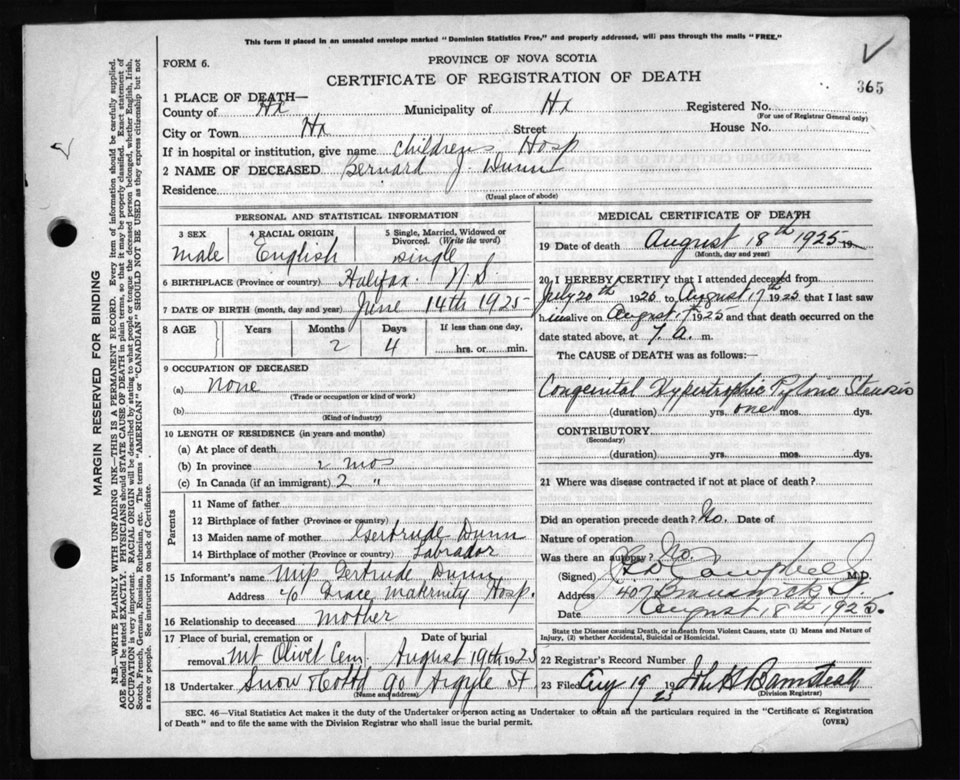 This form if placed in an unsealed envelope marked "Dominion Statistics Free," and properly addressed, will pass through the mails "FREE."
FORM 6.
PROVINCE OF NOVA SCOTIA
CERTIFICATE OF REGISTRATION OF DEATH
365
1 PLACE OF DEATH—
County of Hx Municipality of Hx Registered No.
(For use of Registrar General only)
City or Town Hx Street House No.
If in hospital or institution, give name Childrens Hosp
2 NAME OF DECEASED Bernard J. Dunn
Residence
(Usual place of abode)
PERSONAL AND STATISTICAL INFORMATION
3 SEX 4 RACIAL ORIGIN 5 Single, Married, Widowed or Divorced. (Write the word)
Male English single
6 BIRTHPLACE (Province or country) Halifax N S.
7 DATE OF BIRTH (month, day and year) June 14th 1925
8 AGE Years Months Days If less than one day,
2 4 hrs. or min.
9 OCCUPATION OF DECEASED
(a) None
(Trade or occupation or kind of work)
(b)
(Kind of industry)
10 LENGTH OF RESIDENCE (in years and months)
(a) At place of death
(b) In province 2 mos
(c) In Canada (if an immigrant) 2 "
Parents
11 Name of father
12 Birthplace of father (Province or country)
13 Maiden name of mother Gertrude Dunn
14 Birthplace of mother (Province or country) Labrador
15 Informant's name Miss Gertrude Dunn
Address c/o Grace Maternity Hosp.
16 Relationship to deceased Mother
17 Place of burial, cremation or Date of burial
removal Mt Olivet Cem. August 19th 1925
18 Undertaker Snow & Co Ltd 90 Argyle St
(Name and address)
MEDICAL CERTIFICATE OF DEATH
19 Date of death August 18th 1925 19
(Month, day and year)
20 I HEREBY CERTIFY that I attended deceased from
July 20th 1925 to August 17th 1925 that I last saw
him alive on August 17 1925 and that death occurred on the
date stated above, at 7. A. m.
The CAUSE of DEATH was as follows:
Congenital Hypertrophic Pyloric Stenosis
(duration) yrs. one mos. dys.
CONTRIBUTORY
(Secondary)
(duration) yrs. mos. dys.
21 Where was disease contracted if not at place of death?
Did an operation precede death? No. Date of
Nature of operation
Was there an autopsy? No.
(Signed) Campbell M.D.
Address 407 Brunswick St.
Date August 18th 1925.
State the Disease causing Death, or in death from Violent Causes, state (1) Means and Nature of
Injury, (2) whether Accidental, Suicidal or Homicidal.
22 Registrar's Record Number
23 Filed Aug 19 1925 John H Barnstead
(Division Registrar)
SEC. 46—Vital Statistics Act makes it the duty of the Undertaker or person acting as Undertaker to obtain all the particulars required in the "Certificate of Registration
of Death" and to file the same with the Division Registrar who shall issue the burial permit.
(OVER)
MARGIN RESERVED FOR BINDING
N.B.—WRITE PLAINLY WITH UNFADING INK—THIS IS A PERMANENT RECORD. Every item of information should be carefully supplied.
AGE should be stated EXACTLY. PHYSICIANS should STATE CAUSE OF DEATH in plain terms, so that it may be properly classified. Exact statement of
OCCUPATION is very important. RACIAL ORIGIN will be described by stating to what people or tongue the deceased person belonged, whether English, Irish,
Scotch, French, German, Russian, Ruthenian, etc. The terms "AMERICAN" or "CANADIAN" SHOULD NOT BE USED as they express citizenship but not
a race or people. See instructions on back of Certificate.